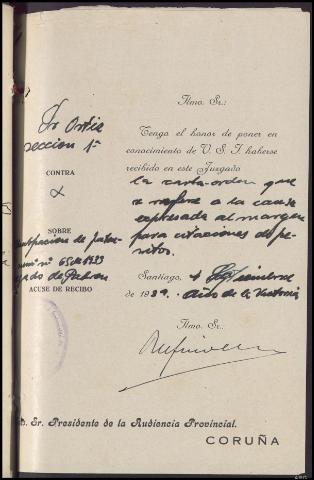 Sr Ortiz
seccion 1ª
CONTRA
X
SOBRE
nº 65 de 1939
de Padron
ACUSE DE RECIBO
Ilmo. Sr.:
Tengo el honor de poner en
conocimiento de V. S. I. haberse
recibido en este Juzgado
la carta-orden que
se refiere a la causa
expresada al margen
para citaciones de pe-
ritos.
Santiago, 1 Septiembre
de 1939. Año de la Victoria
Ilmo. Sr.,
Sr. Presidente de la Audiencia Provincial.
CORUÑA